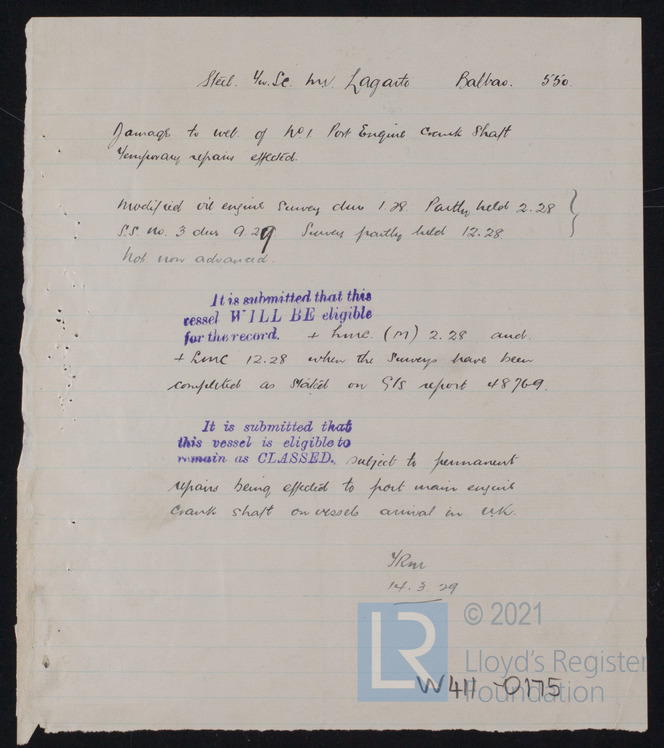 Steel. Tw. Sc. MV. Lagarto Balboa. 550.
Damage to web of No 1 Port Engine Crank Shaft
Temporary repairs effected.
Modified oil engine Survey due 1.28. Partly held 2.28 }
S.S. no. 3 due 9.29 Survey partly held 12.28
Not now advanced.
It is submitted that this
vessel WILL BE eligible
for the record. + LMC. (M) 2.28 and
+ LMC 12.28 when the surveys have been
completed as stated on Gls report 48769.
It is submitted that
this vessel is eligible to
remain as CLASSED. subject to permanent
repairs being effected to port main engine
crank shaft on vessels arrival in U.K.
14.3.29
LR
© 2021
Lloyd's Register
Foundation
W411-0175